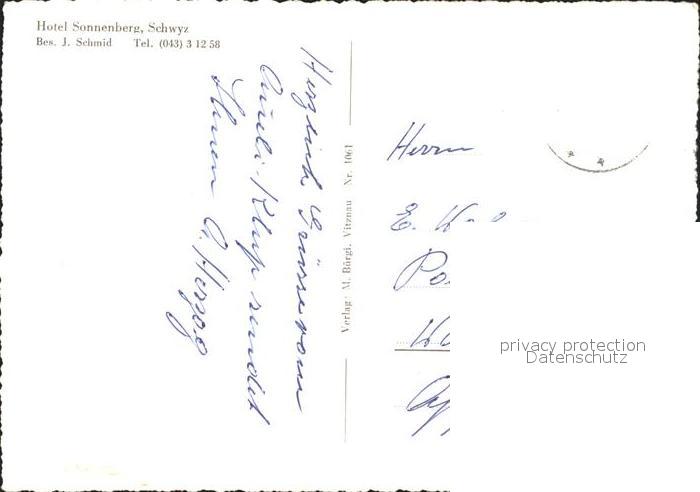 Hotel Sonnenberg, Schwyz
Bes. J. Schmid Tel. (043) 3 12 58
Herzlich Grüsse vom
sendet
Ihnen A. Herzog
Verlag: M. Bürgi, Vitznau Nr. 1061
Herrn
E.
Po
privacy protection
Datenschutz